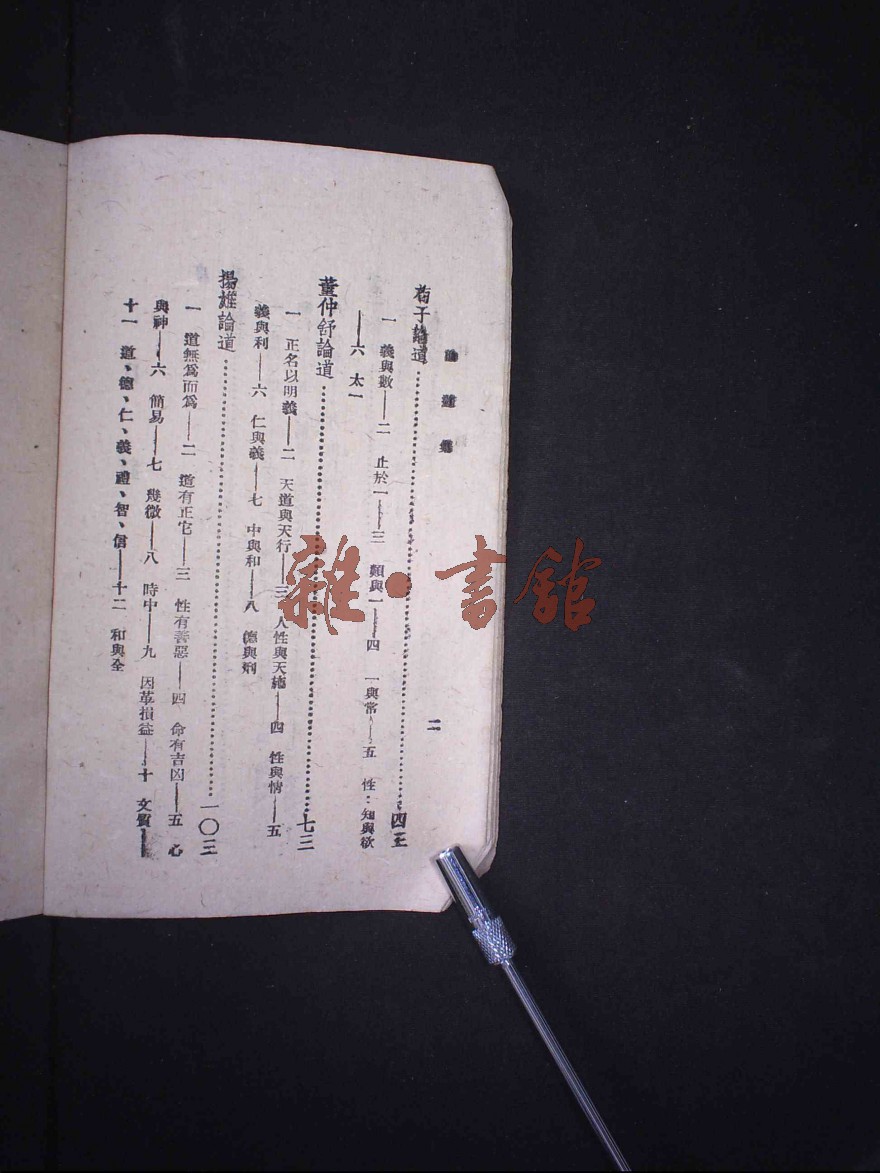 論道集
二
荀子論道……四三
一　義與數——二　止於一——三　類與一——四　一與常——五　性：知與欲
——六　太一
董仲舒論道……七三
一　正名以明義——二　天道與天行——三　人性與天施——四　性與情——五
義與利——六　仁與義——七　中與和——八　德與刑
揚雄論道……一〇三
一　道無爲而爲——二　道有正它——三　性有善惡——四　命有吉凶——五　心
與神——六　簡易——七　幾微——八　時中——九　因革損益——十　文質——
十一　道、德、仁、義、禮、智、信——十二　和與全
雜·書館